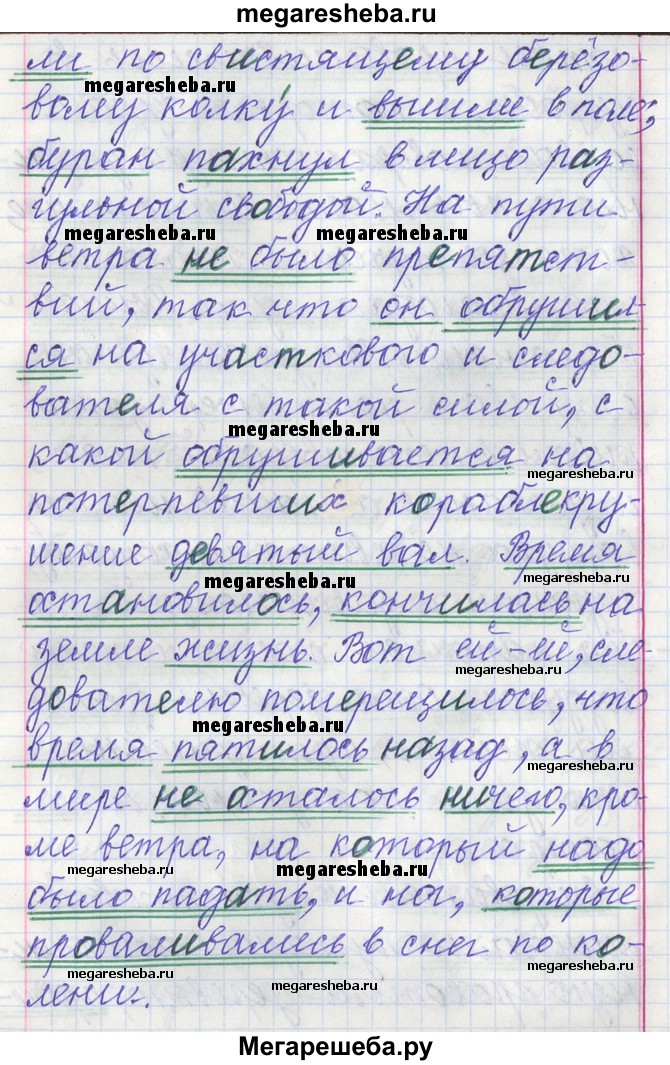 megaresheba.ru
ли по свистящему берёзо-
megaresheba.ru
megaresheba.ru
вому колку и вышли в поле,
буран пахнул в лицо раз-
гульной свободой. На пути
megaresheba.ru
megaresheba.ru
ветра не было препятст-
вий, так что он обрушил-
ся на участкового и следо-
вателя с такой силой, с
megaresheba.ru
какой обрушивается на
megaresheba.ru
потерпевших кораблекру-
шение девятый вал. Время
megaresheba.ru
megaresheba.ru
остановилось, кончилась на
земле жизнь. Вот ей-ей, сле-
megaresheba.ru
дователю померещилось, что
megaresheba.ru
время пятилось назад, а в
megaresheba.ru
мире не осталось ничего, кро-
ме ветра, на который надо
megaresheba.ru
megaresheba.ru
было падать, и ног, которые
проваливались в снег по ко-
megaresheba.ru
megaresheba.ru
megaresheba.ru
лени.
Мегарешеба.ру